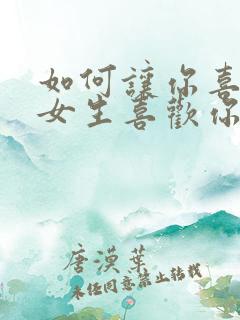 如何讓你喜
女生喜歡你
唐漠葉
未經同意禁止轉載